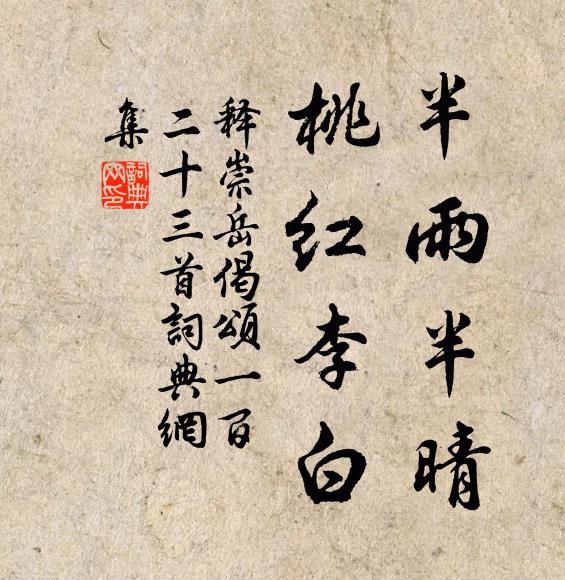 半雨半晴
桃红李白
释崇岳偈頌一百
二十三首詞典網
集
詞典
网印